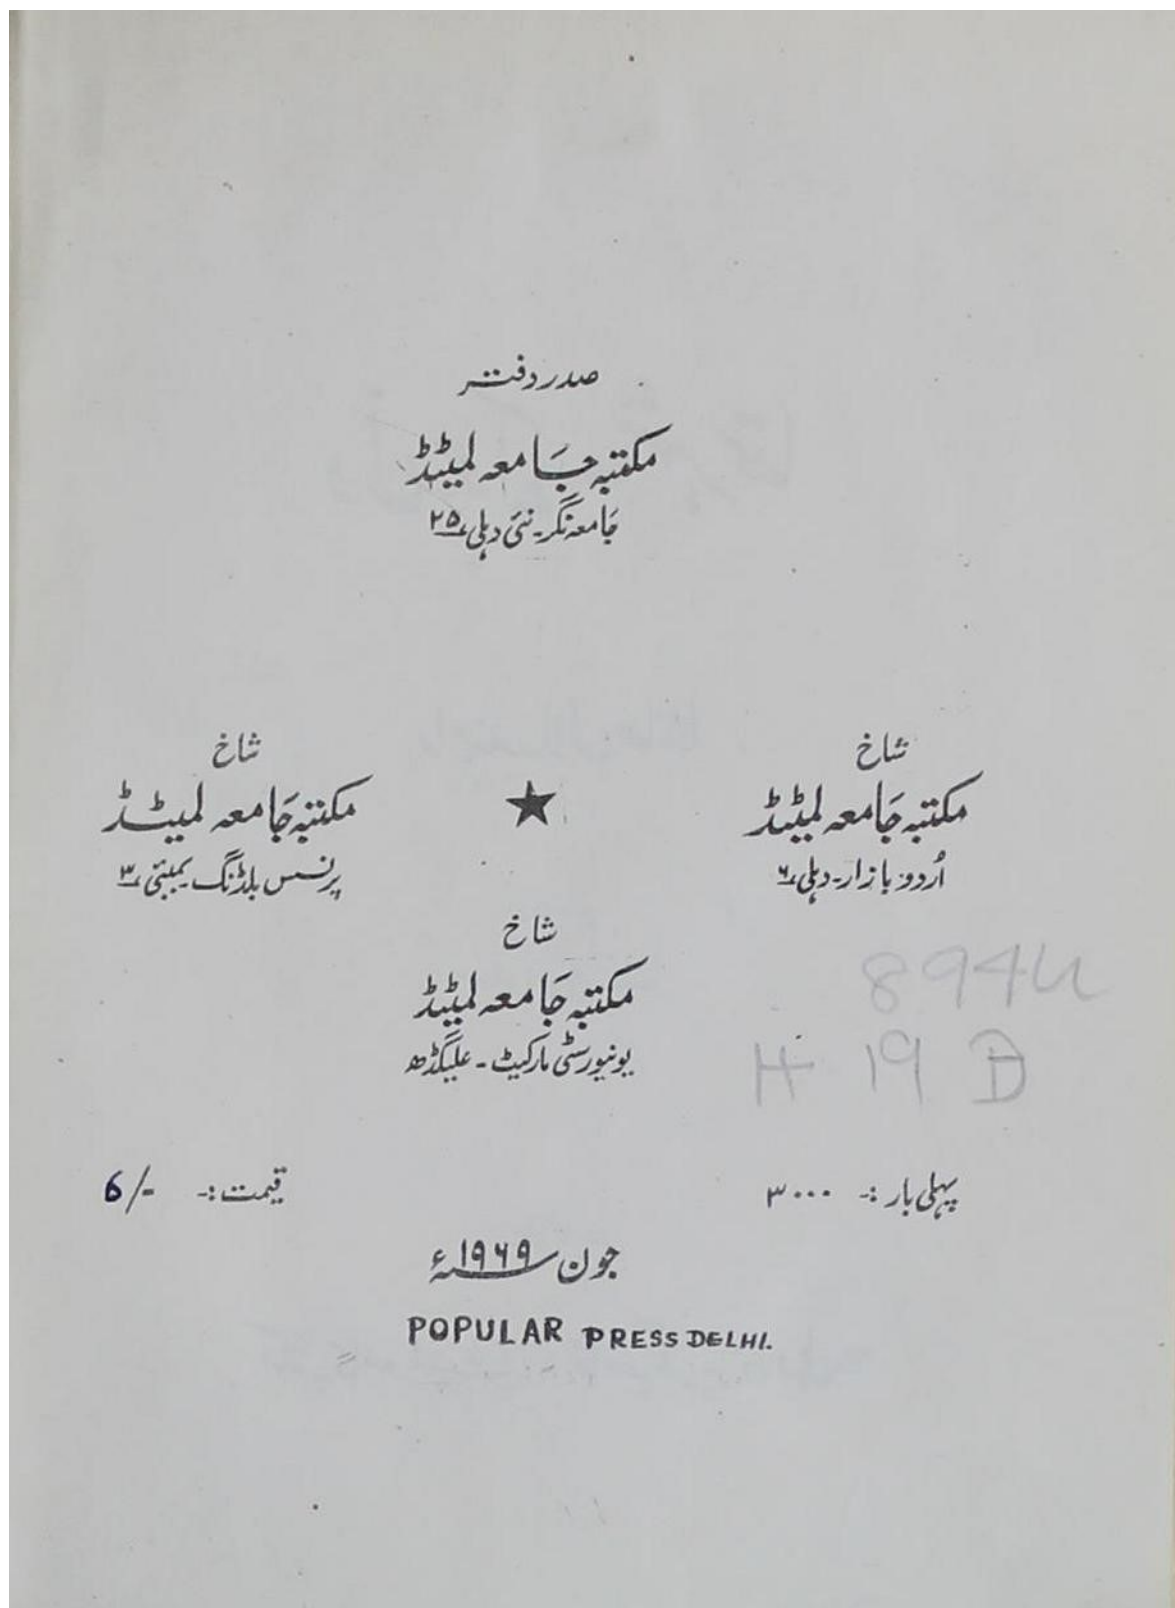 صدر دفتر
مکتبہ جامعہ لمیٹڈ
جامعہ نگر۔ نئی دہلی ۲۵
شاخ
مکتبہ جامعہ لمیٹڈ
اُردو بازار۔ دہلی ۶
شاخ
مکتبہ جامعہ لمیٹڈ
پرنسس بلڈنگ۔ بمبئی ۳
شاخ
مکتبہ جامعہ لمیٹڈ
یونیورسٹی مارکیٹ۔ علیگڈھ
894U
H 19 D
پہلی بار :۔ ۳۰۰۰
قیمت :۔ 6/-
جون ۱۹۶۹ء
POPULAR PRESS DELHI.